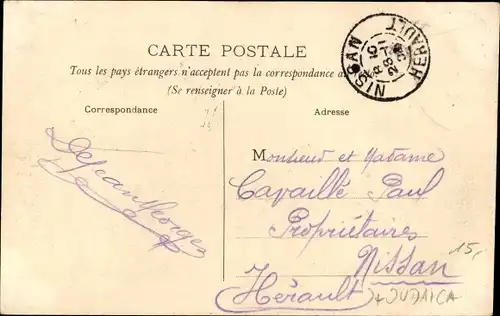 CARTE POSTALE
Tous les pays étrangers n'acceptent pas la correspondance a
(Se renseigner à la Poste)
NISSAN
HÉRAULT
Correspondance
Adresse
Dejean Georges
Monsieur et Madame
Cavaillé Paul
Propriétaires
Nissan
15,-
Hérault
+ JUDAICA